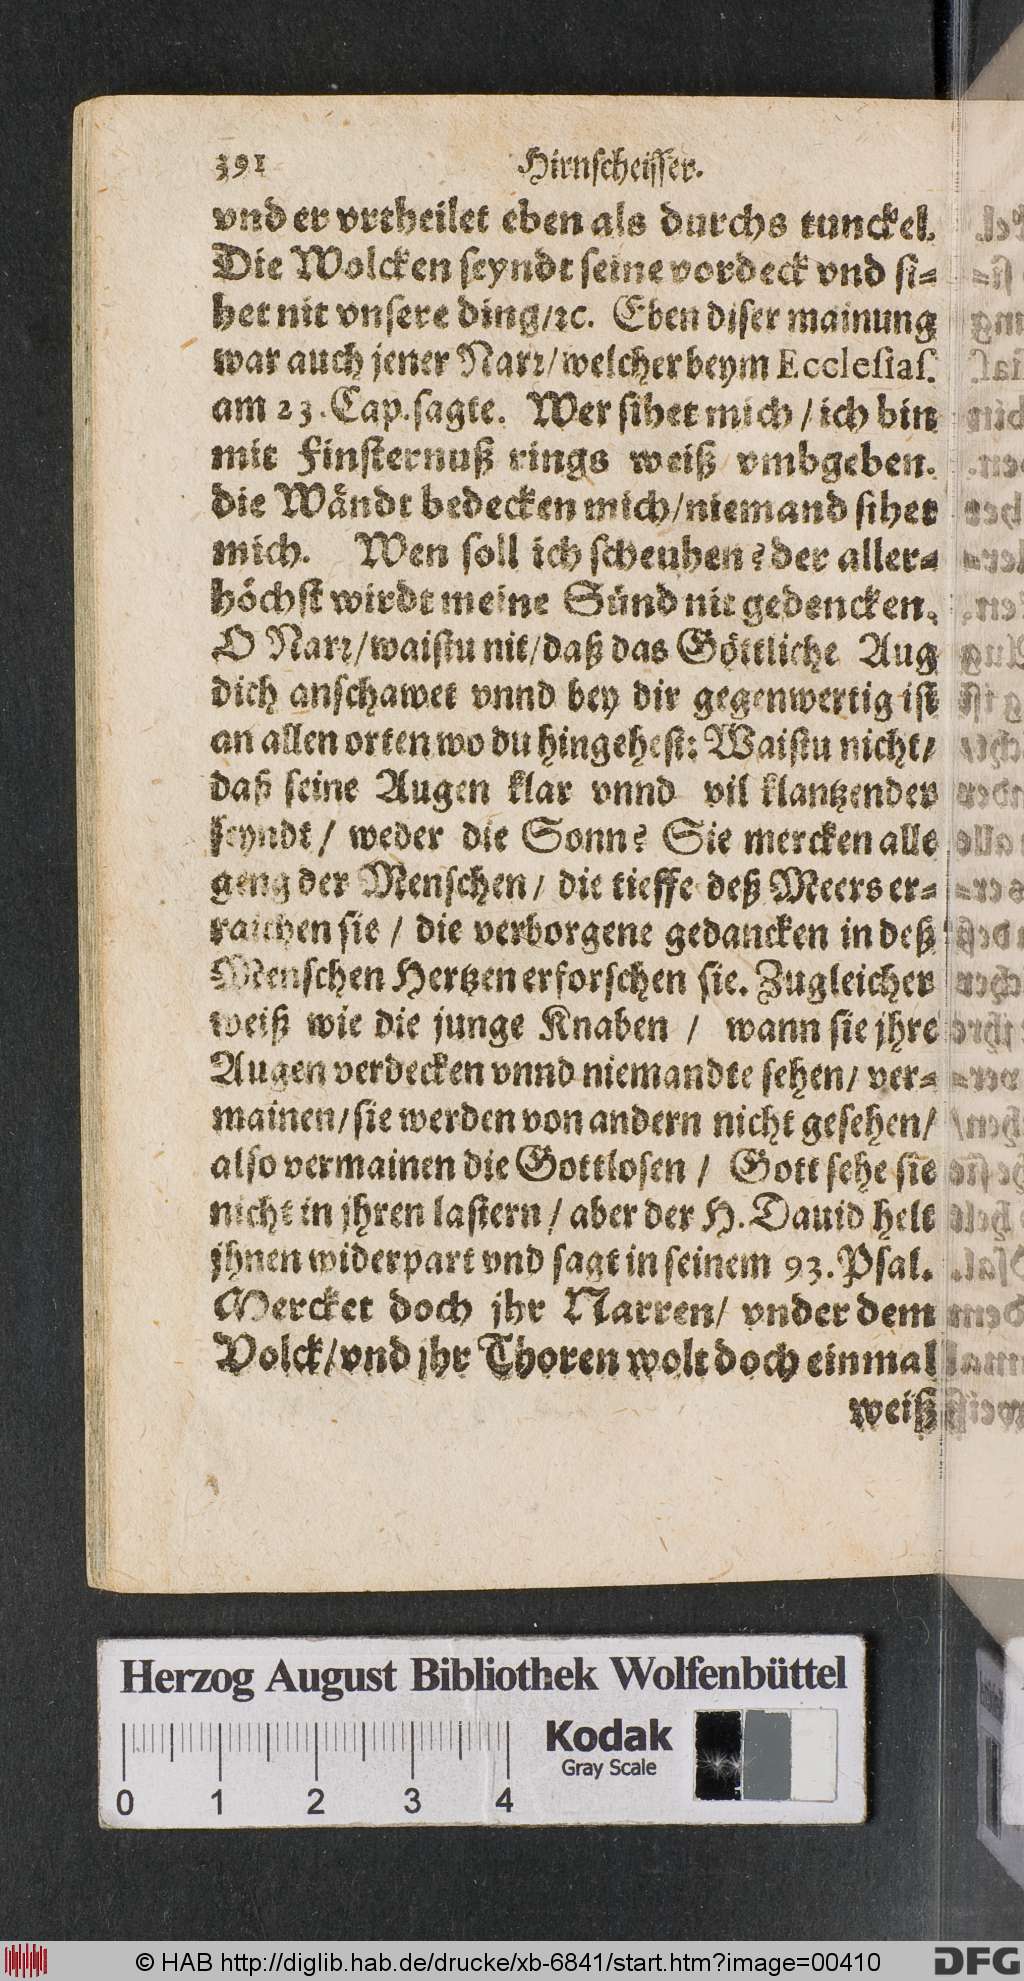 391 Hirnscheisser.
vnd er vrtheilet eben als durchs tunckel.
Die Wolcken seyndt seine vordeck vnd si-
het nit vnsere ding/ꝛc. Eben diser mainung
war auch jener Narꝛ/welcher beym Ecclesias.
am 23. Cap. sagte. Wer sihet mich / ich bin
mit Finsternuß rings weiß vmbgeben.
die Wändt bedecken mich/niemand sihet
mich. Wen soll ich scheuhen? der aller-
höchst wirdt meine Sünd nit gedencken.
O Narꝛ/waistu nit/daß das Göttliche Aug
dich anschawet vnnd bey dir gegenwertig ist
an allen orten wo du hingehest: Waistu nicht/
daß seine Augen klar vnnd vil klantzender
seyndt / weder die Sonn? Sie mercken alle
geng der Menschen / die tieffe deß Meers er-
raichen sie / die verborgene gedancken in deß
Menschen Hertzen erforschen sie. Zugleicher
weiß wie die junge Knaben / wann sie jhre
Augen verdecken vnnd niemandte sehen/ ver-
mainen/sie werden von andern nicht gesehen/
also vermainen die Gottlosen / Gott sehe sie
nicht in jhren lastern / aber der H. Dauid helt
jhnen widerpart vnd sagt in seinem 93. Psal.
Mercket doch jhr Narren/ vnder dem
Volck/vnd jhr Thoren wolt doch einmal
weiß
Herzog August Bibliothek Wolfenbüttel
Kodak
Gray Scale
0 1 2 3 4
© HAB http://diglib.hab.de/drucke/xb-6841/start.htm?image=00410
DFG